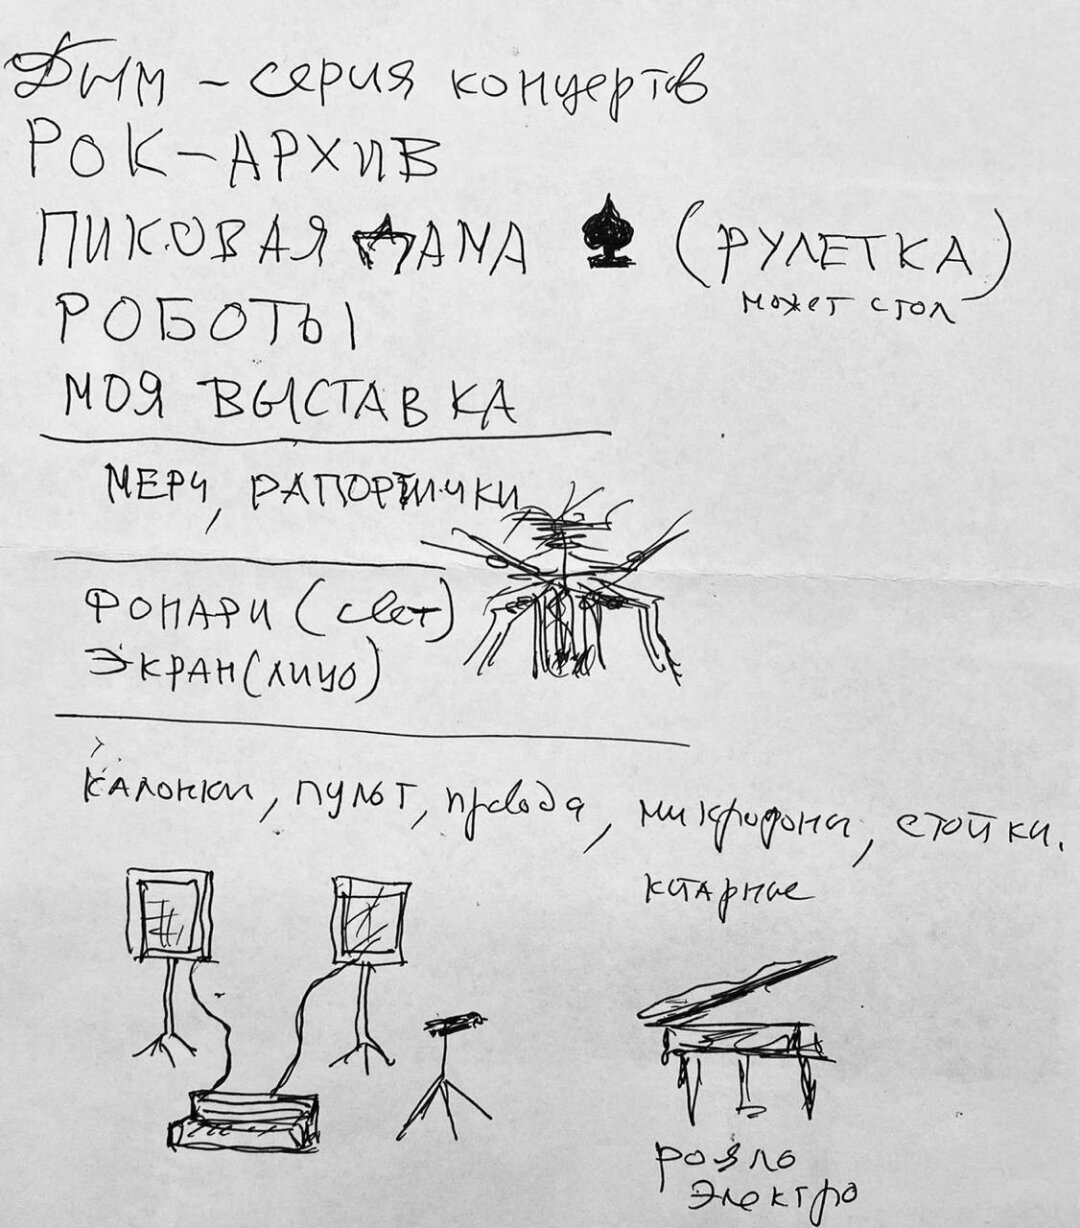 Дым – серия концертов
РОК-АРХИВ
ПИКОВАЯ ДАМА (РУЛЕТКА)
может стол
РОБОТЫ
МОЯ ВЫСТАВКА
МЕРЧ, РАПОРТИЧКИ
ФОНАРИ (свет)
ЭКРАН (лицо)
калонки, пульт, провода, микрофоны, стойки.
РОЯЛЬ
электро